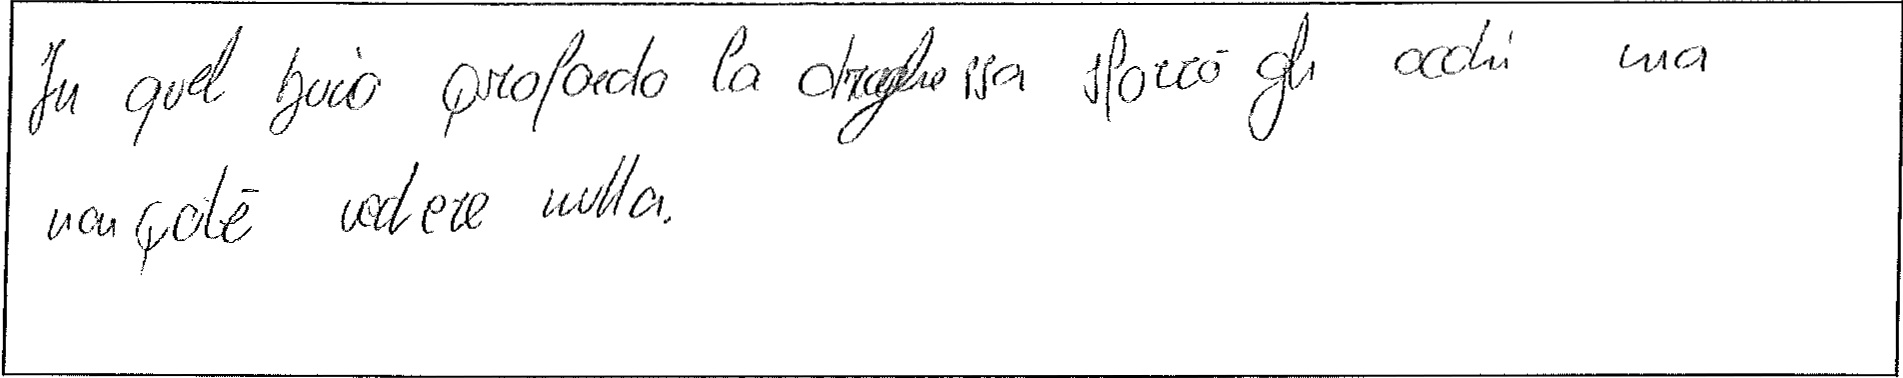 In quel buio profondo la draghessa sforzò gli occhi ma
non potē vedere nulla.